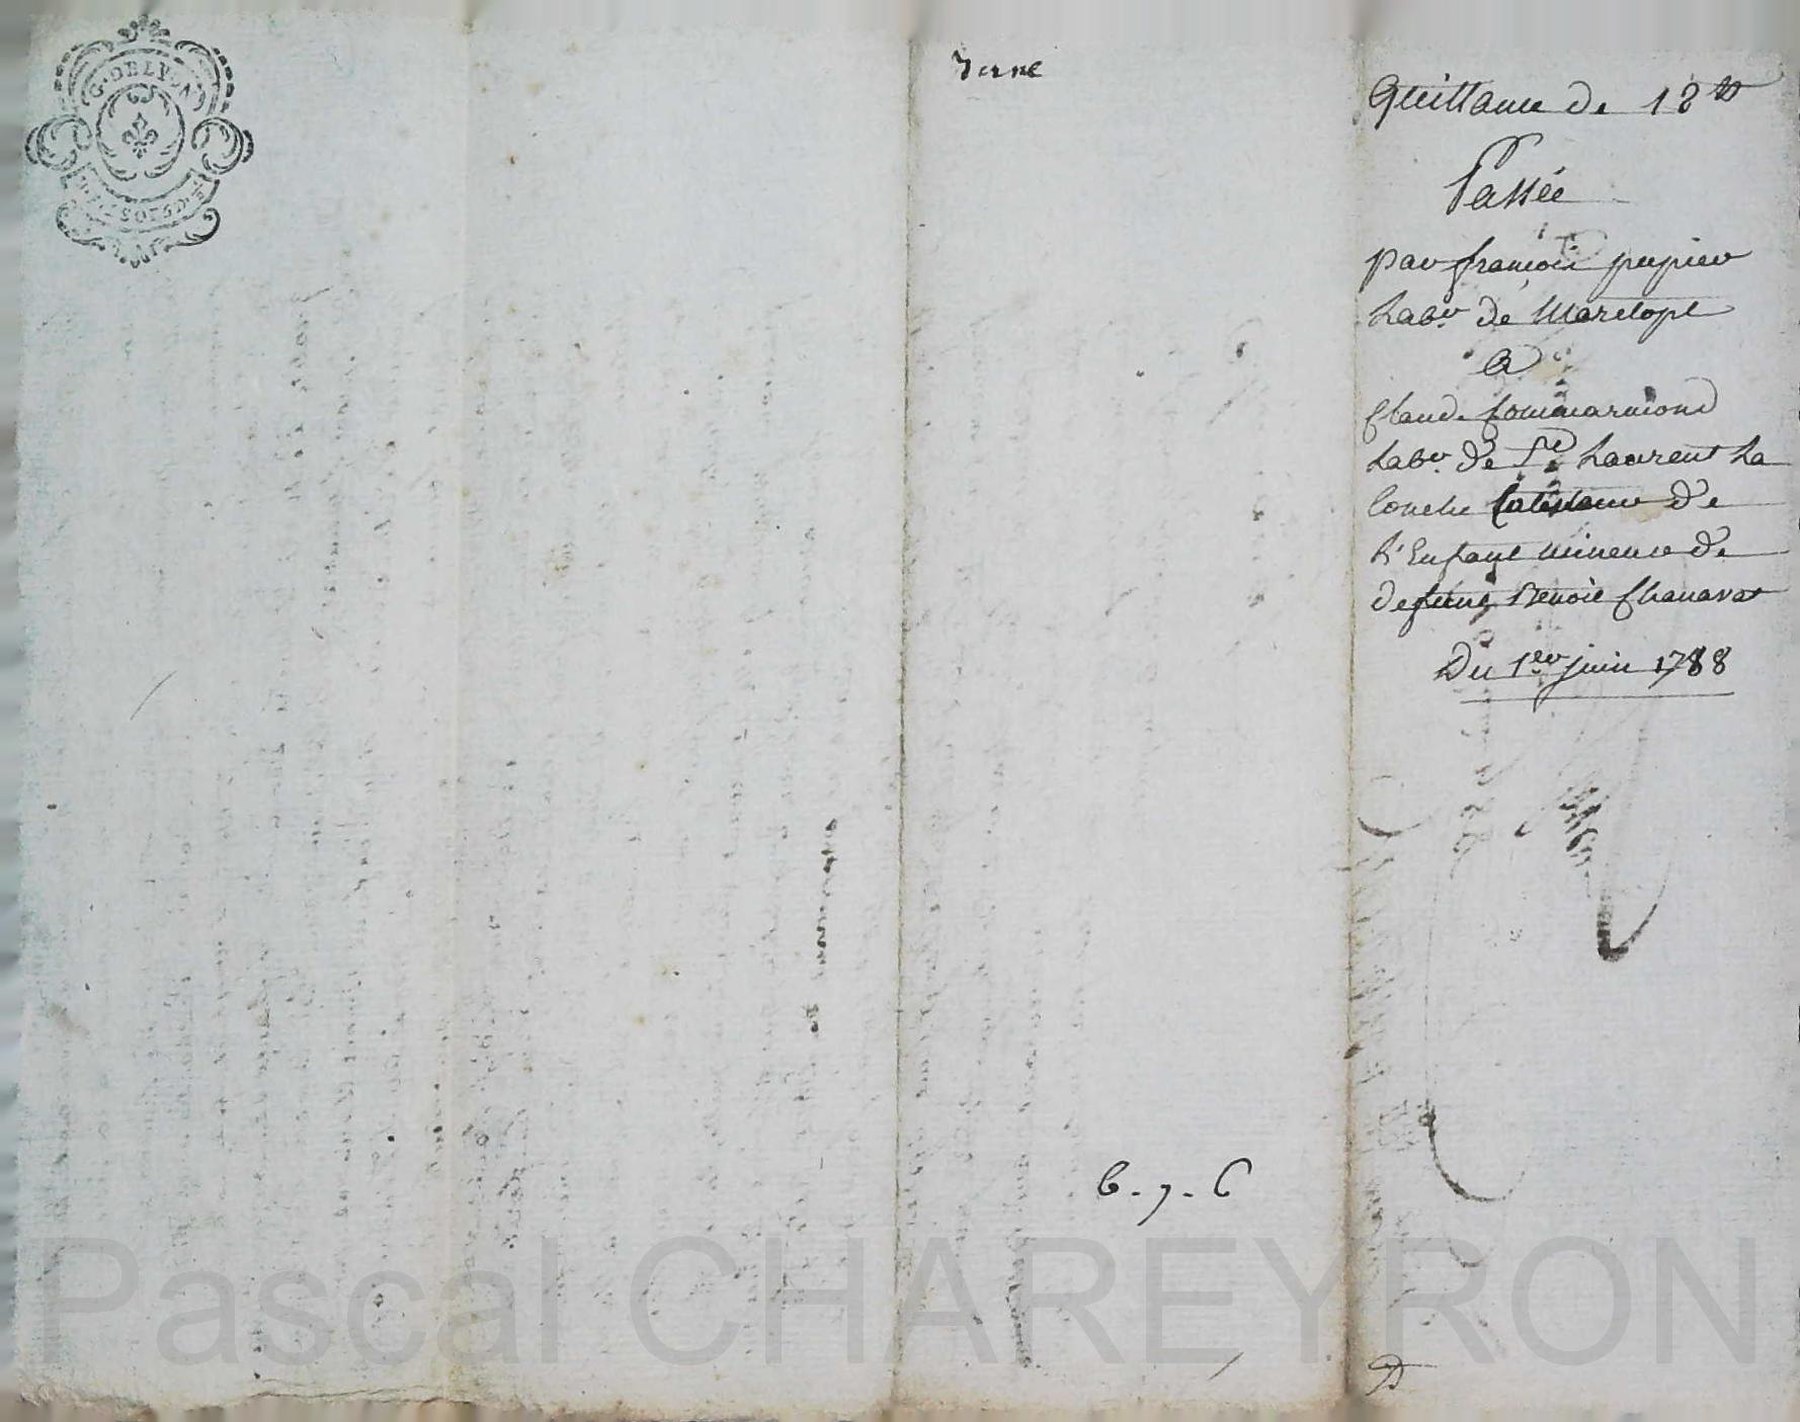 G. DE LYON
3 erne
Quittance de 18 tt
Passée
par françois pupier
Labr. de Marclopt
a
Claude Commarmond
Labr. de St Laurent La
Conche
de
L'Enfant mineure de
defunt Benoit Chanavat
Du 1er juin 1788
6 - 7 - 6
Pascal CHAREYRON